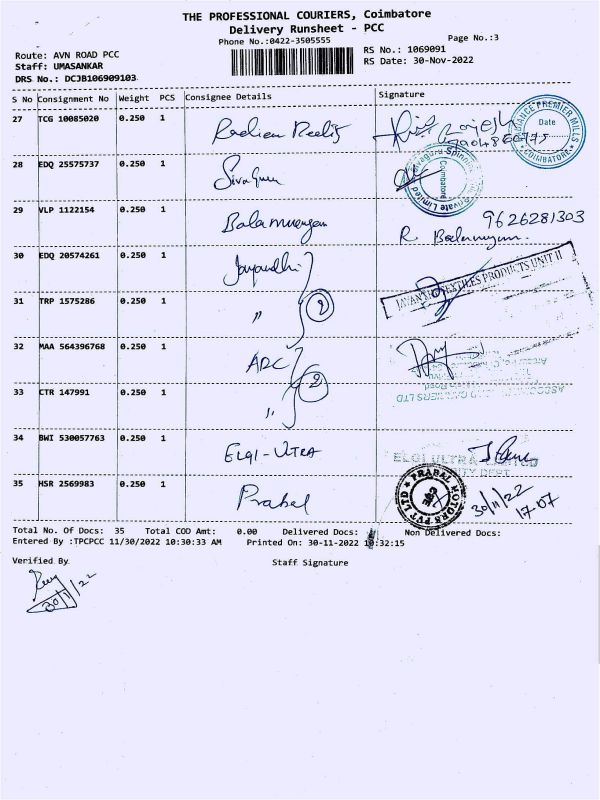 THE PROFESSIONAL COURIERS, Coimbatore
Delivery Runsheet - PCC
Phone No.:0422-3505555
Page No.:3
Route: AVN ROAD PCC
RS No.: 1069091
Staff: UMASANKAR
RS Date: 30-Nov-2022
DRS No.: DCJB106909103
S No Consignment No Weight PCS Consignee Details Signature
27 TCG 10085020 0.250 1
RADIANCE PREMIER MILLS
Date
COIMBATORE
28 EDQ 25575737 0.250 1 Sivaguru
Sivaguru Spinning
Private Limited
Coimbatore
29 VLP 1122154 0.250 1 Balamurugan 9626281303
R. Balamurugan
30 EDQ 20574261 0.250 1 Jayandhi
JAYANTHI TEXTILES PRODUCTS UNIT II
31 TRP 1575286 0.250 1 " 2
32 MAA 564396768 0.250 1 ADC
33 CTR 147991 0.250 1 " 2
34 BWI 530057763 0.250 1 ELGI-ULTRA
ELGI ULTRA LIMITED
35 HSR 2569983 0.250 1 Prabal
PRABAL MOTORS PVT LTD
30/11/22
17-07
Total No. Of Docs: 35 Total COD Amt: 0.00 Delivered Docs: Non Delivered Docs:
Entered By :TPCPCC 11/30/2022 10:30:33 AM Printed On: 30-11-2022 10:32:15
Verified By
Staff Signature
30/11/22